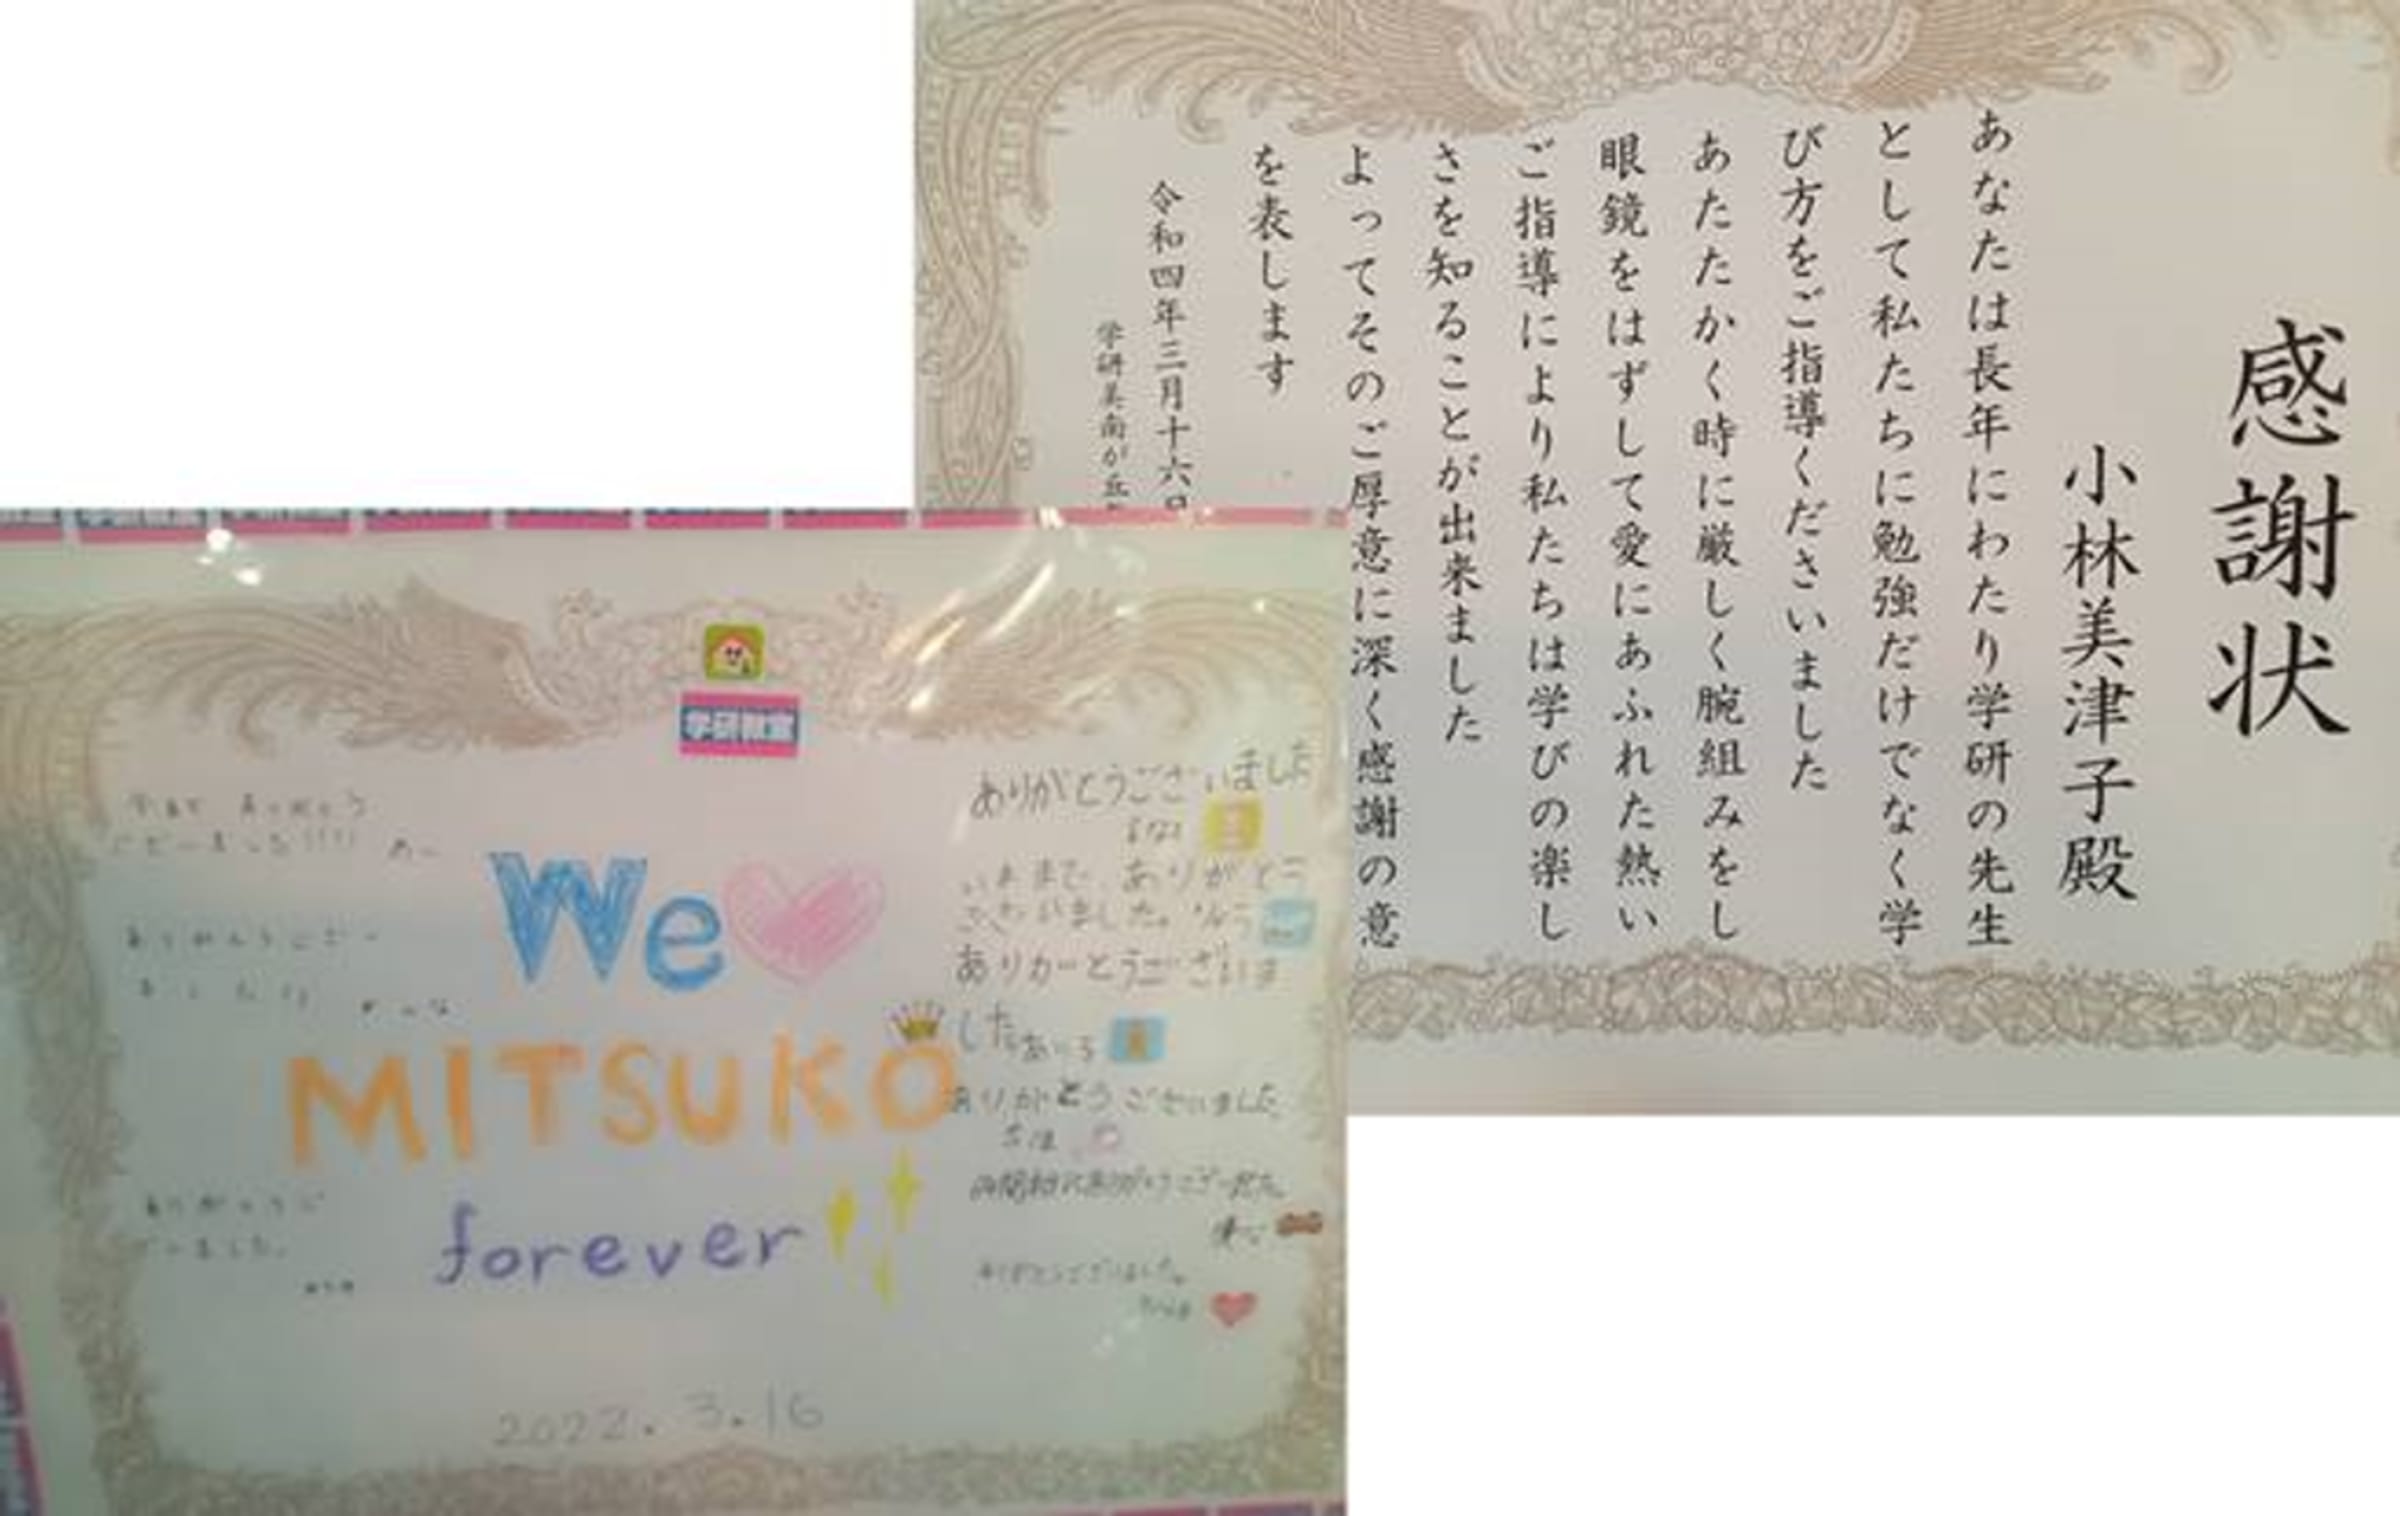 感謝状
小林美津子殿
あなたは長年にわたり学研の先生
として私たちに勉強だけでなく学
び方をご指導くださいました
あたたかく時に厳しく腕組みをし
眼鏡をはずして愛にあふれた熱い
ご指導により私たちは学びの楽し
さを知ることが出来ました
よってそのご厚意に深く感謝の意
を表します
令和四年三月十六日
学研美南が丘
学研教室
We
MITSUKO
forever
2022.3.16
ありがとうございました
いままで、ありがとう
ございました。
ありがとうございま
した
ありがとうございました
ありがとうございました。